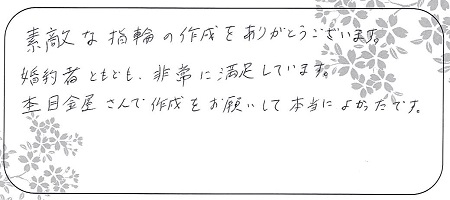 素敵な指輪の作成をありがとうございます。
婚約者ともども、非常に満足しています。
杢目金屋さんで作成をお願いして本当によかったです。